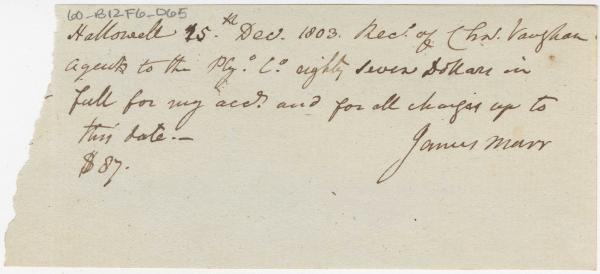 60-B12F6-D65
Hallowell 25.th Dec. 1803. Rec.d of Chs. Vaughan
agents to the Ply.o Co. eighty seven Dollars in
full for my acct. and for all charges up to
this date.—
$87.
James Marr